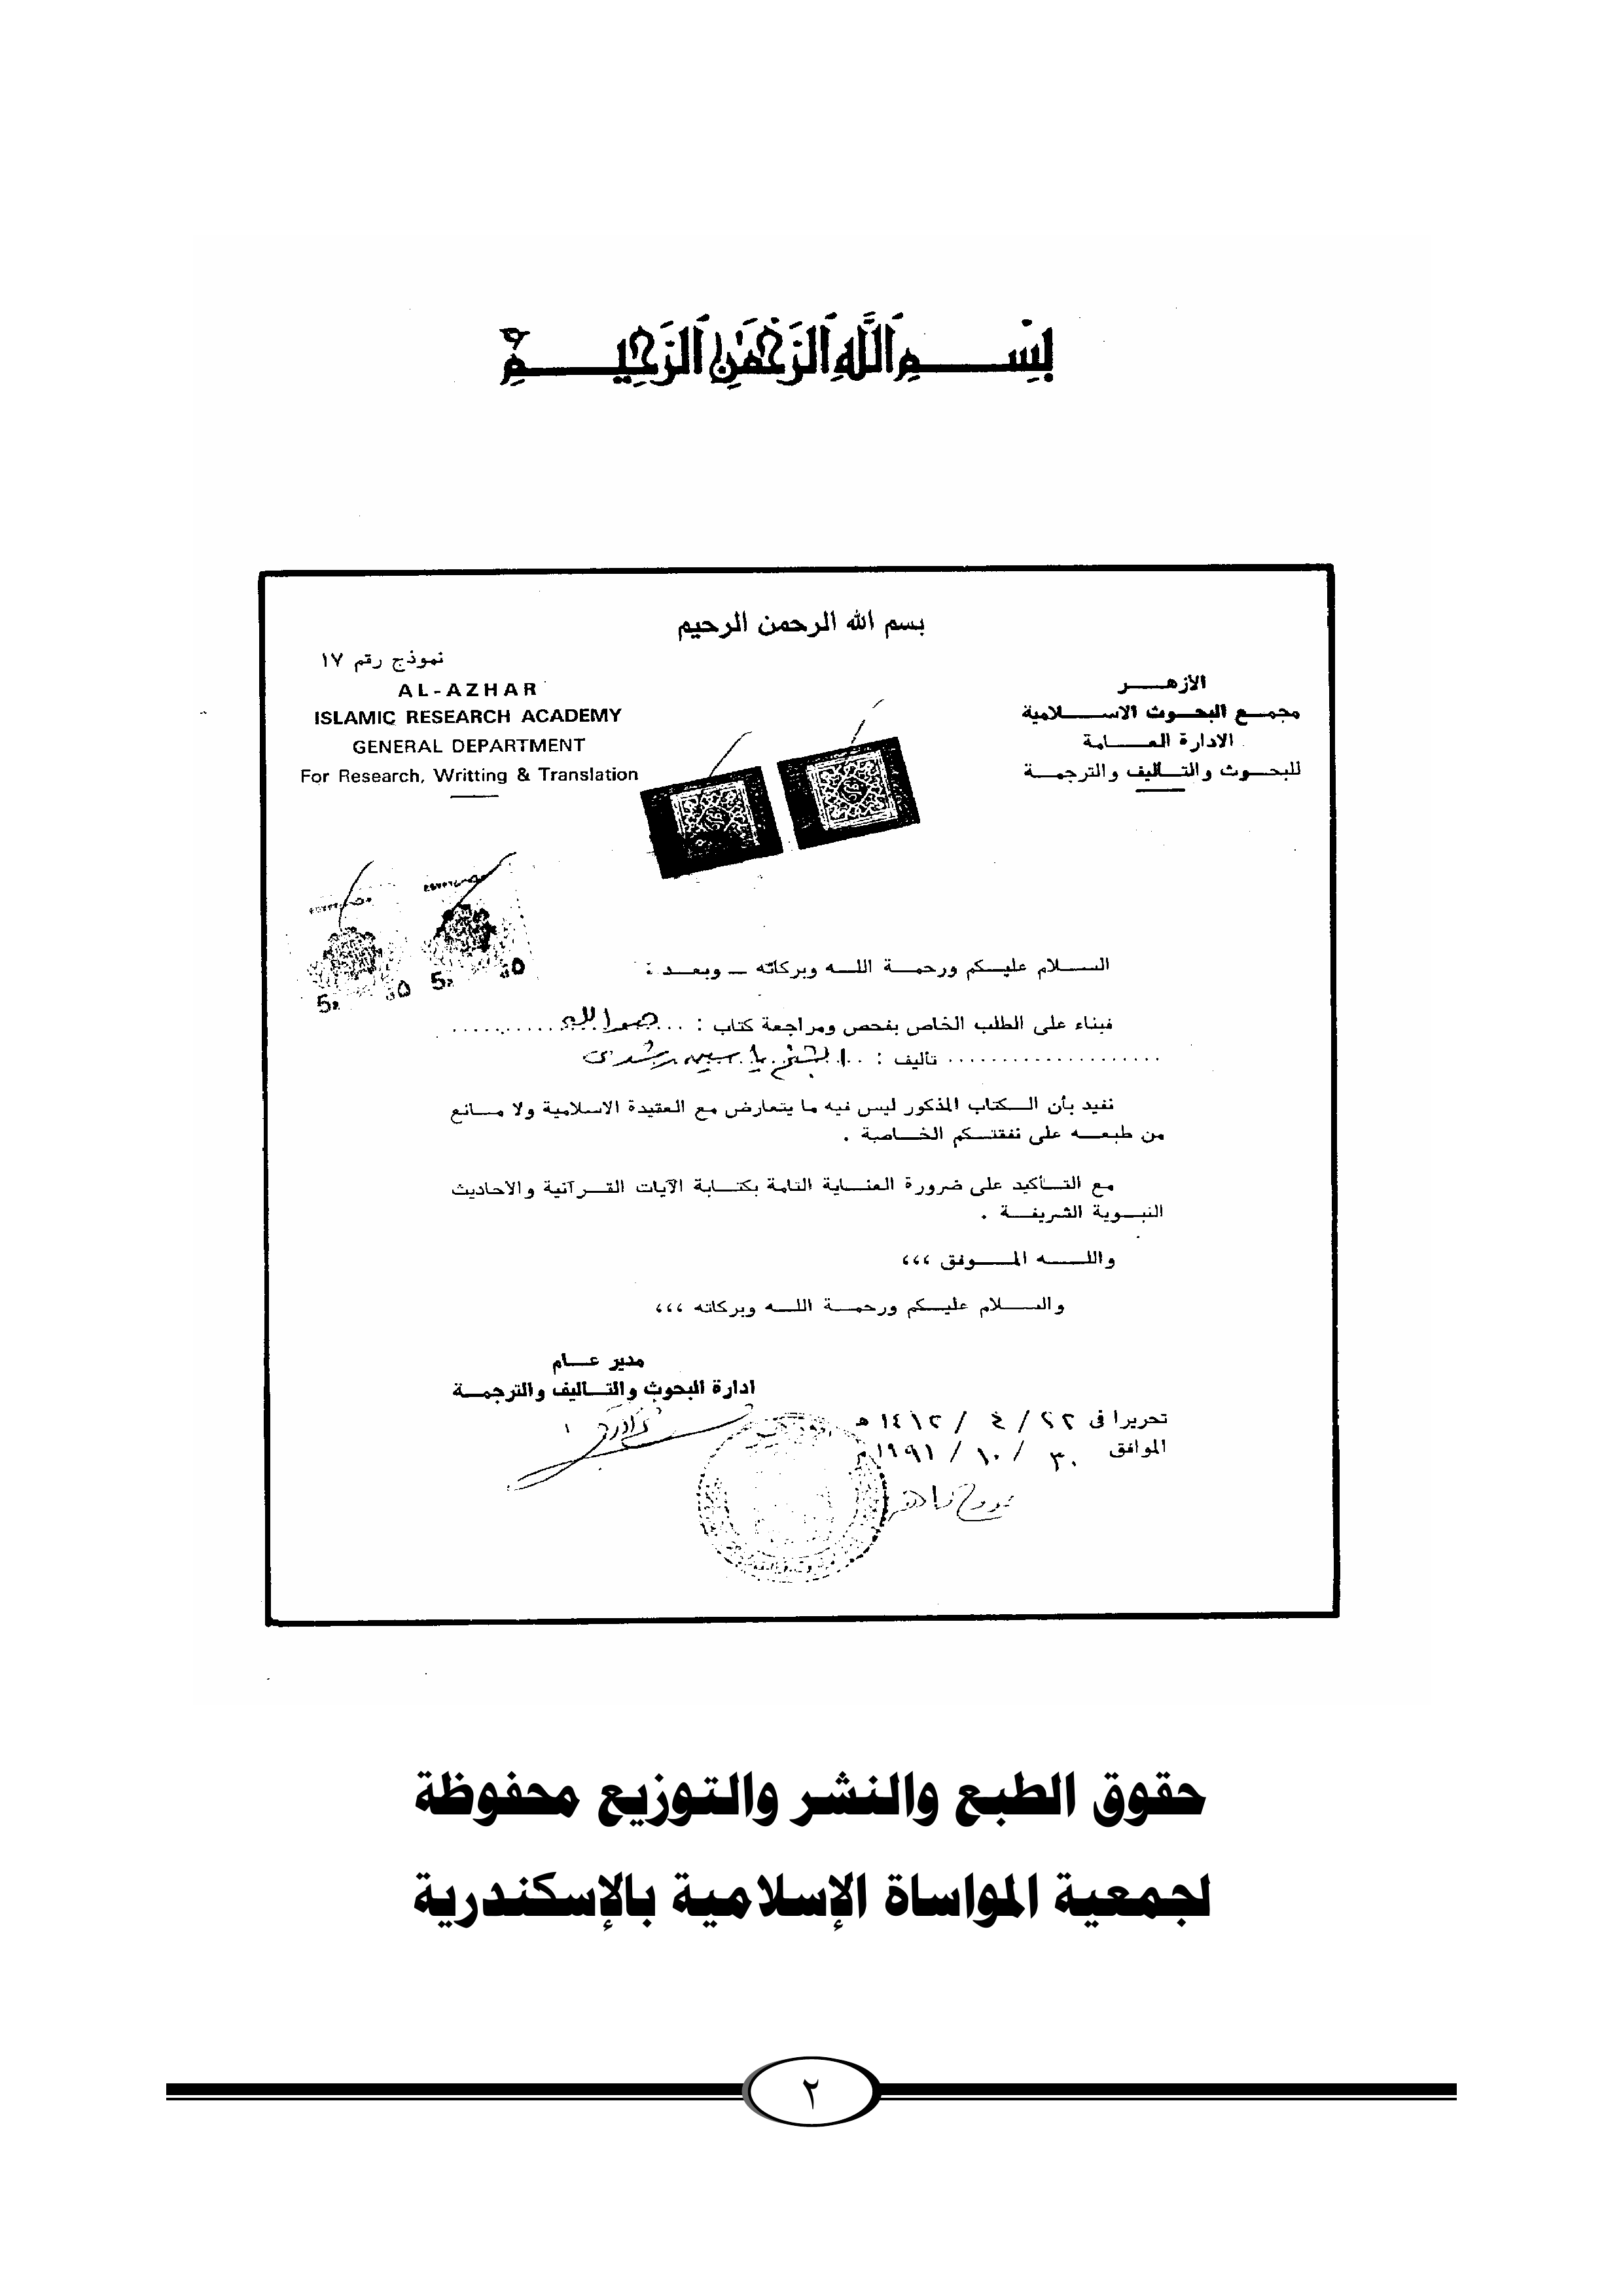 بِسْمِ اللَّهِ الرَّحْمَٰنِ الرَّحِيمِ
بسم الله الرحمن الرحيم
نموذج رقم ١٧
AL-AZHAR
ISLAMIC RESEARCH ACADEMY
GENERAL DEPARTMENT
For Research, Writting & Translation
الأزهر
مجمع البحوث الاسلامية
الادارة العامة
للبحوث والتأليف والترجمة
السلام عليكم ورحمة الله وبركاته ــ وبعد :
فبناء على الطلب الخاص بفحص ومراجعة كتاب : هو الله
تأليف : الشيخ ياسين رشدى
نفيد بأن الكتاب المذكور ليس فيه ما يتعارض مع العقيدة الاسلامية ولا مانع
من طبعه على نفقتكم الخاصة .
مع التأكيد على ضرورة العناية التامة بكتابة الآيات القرآنية والاحاديث
النبوية الشريفة .
والله الموفق ،،،
والسلام عليكم ورحمة الله وبركاته ،،،
مدير عام
ادارة البحوث والتأليف والترجمة
تحريرا فى ٢٢ / ٤ / ١٤١٢ هـ
الموافق ٣٠ / ١٠ / ١٩٩١ م
حقوق الطبع والنشر والتوزيع محفوظة
لجمعية المواساة الإسلامية بالإسكندرية
٢